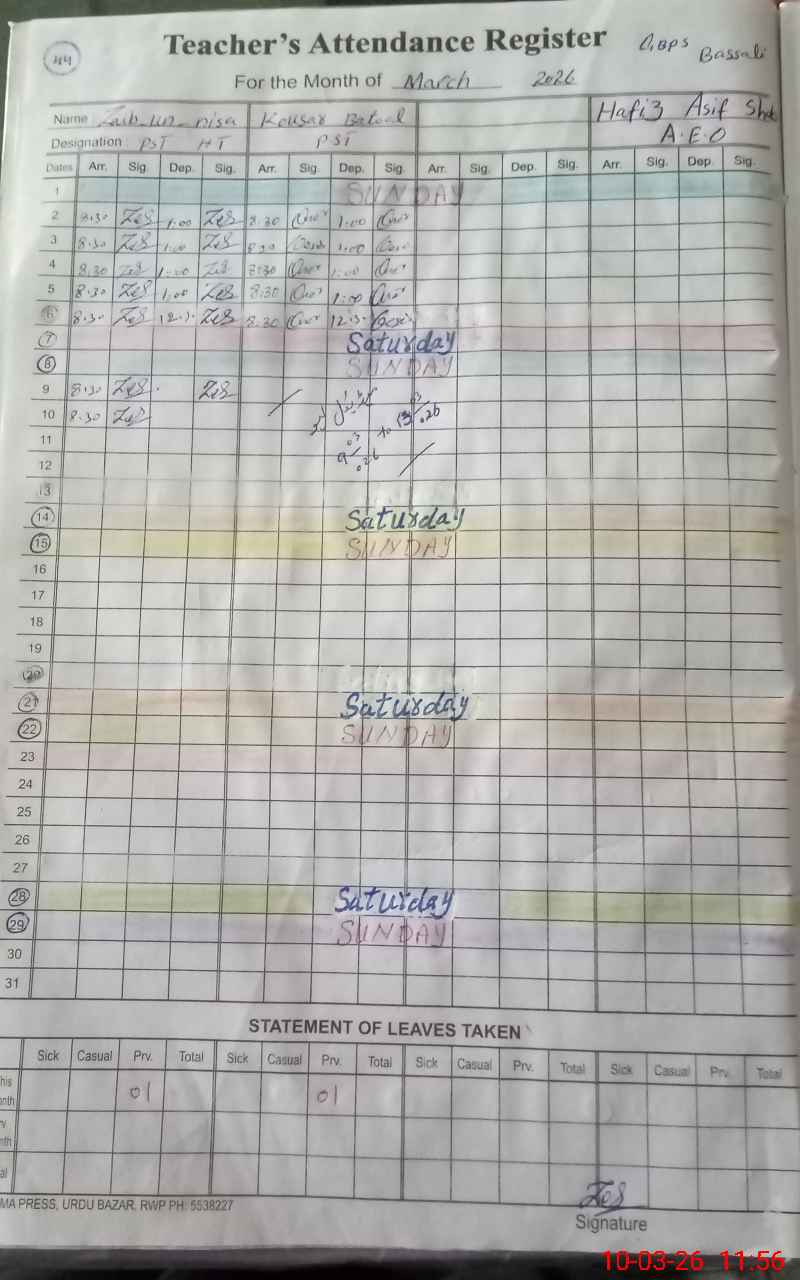 44
Teacher's Attendance Register
G.BPS Bassali
For the Month of March 2026
Name Zaib_un_nisa Kousar Batool Hafiz Asif
Designation: PST HT PST A.E.O
Dates Arr. Sig. Dep. Sig. Arr. Sig. Dep. Sig. Arr. Sig. Dep. Sig. Arr. Sig. Dep. Sig.
1 SUNDAY
2 8.30 ZeS 1.00 ZeS 8.30 1.00
3 8.30 ZeS 1.00 ZeS 8.30 1.00
4 8.30 ZeS 1.00 ZeS 8.30 1.00
5 8.30 ZeS 1.00 ZeS 8.30 1.00
6 8.30 ZeS 12.30 ZeS 8.30 12.30
7 Saturday
8 SUNDAY
9 8.30 ZeS ZeS
10 8.30 ZeS
9/03.026 to 13/03.26
11
12
13
14 Saturday
15 SUNDAY
16
17
18
19
20
21 Saturday
22 SUNDAY
23
24
25
26
27
28 Saturday
29 SUNDAY
30
31
STATEMENT OF LEAVES TAKEN
Sick Casual Prv. Total Sick Casual Prv. Total Sick Casual Prv. Total Sick Casual Prv. Total
01 01
MA PRESS, URDU BAZAR, RWP PH: 5538227
ZeS
Signature
10-03-26 11:56